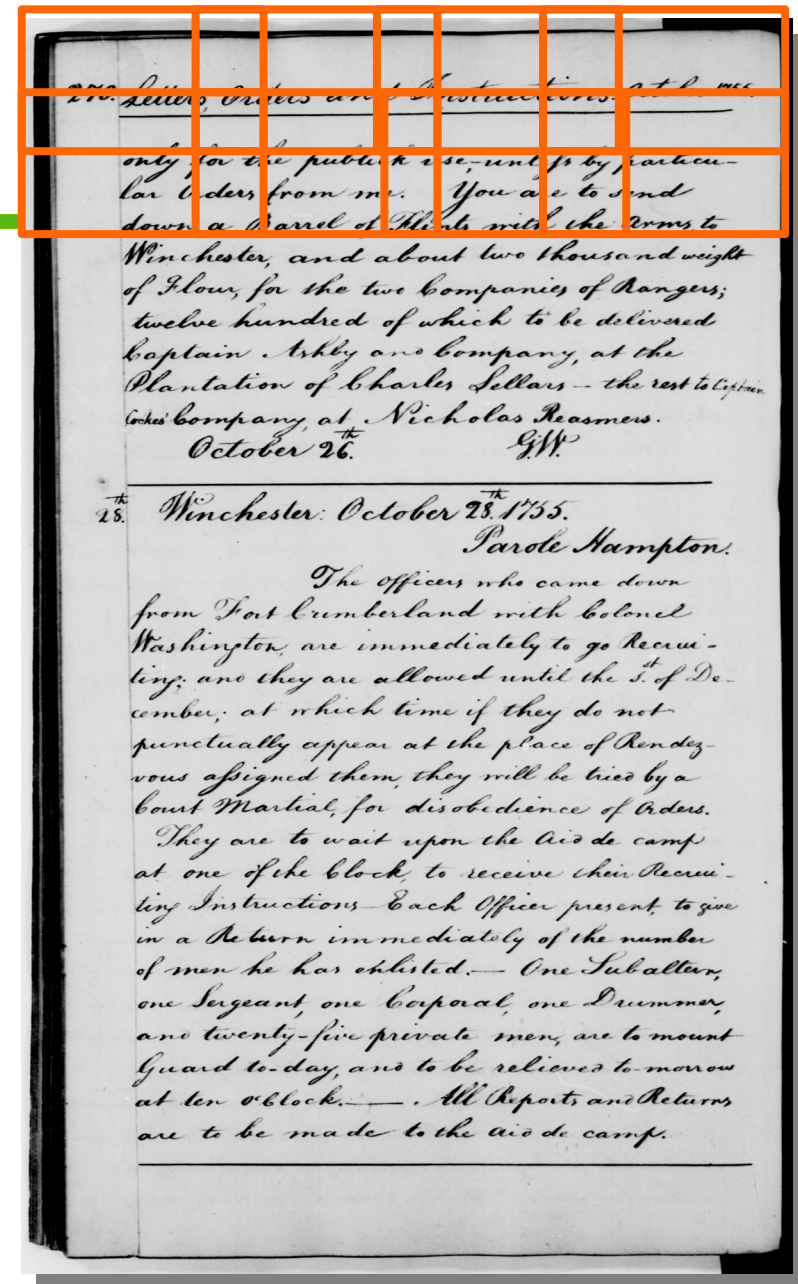 270. Letters, Orders and Instructions. October 1755.
only for the publick use, unless by particu-
lar Orders from me. You are to send
down a Barrel of Flints with the Arms, to
Winchester, and about two thousand weight
of Flour, for the two Companies of Rangers;
twelve hundred of which to be delivered
Captain Ashby and Company, at the
Plantation of Charles Sellars — the rest to Captain
Cockes' Company, at Nicholas Reasmers.
October 26th. G.W.
28th. Winchester: October 28th. 1755.
Parole Hampton.
The officers who came down
from Fort Cumberland with Colonel
Washington, are immediately to go Recrui-
ting; and they are allowed until the 1st. of De-
cember; at which time if they do not
punctually appear at the place of Rendez-
vous assigned them, they will be tried by a
Court Martial, for disobedience of Orders.
They are to wait upon the Aid de camp
at one of the Clock, to receive their Recrui-
ting Instructions — Each Officer present, to give
in a Return immediately of the number
of men he has enlisted. — One Subaltern,
one Sergeant, one Corporal, one Drummer,
and twenty-five private men, are to mount
Guard to-day, and to be relieved to-morrow
at ten o'Clock. — . All Reports and Returns
are to be made to the aid de camp.